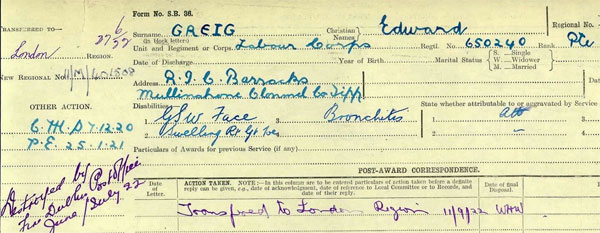 Form No. S.B. 36.
TRANSFERRED TO—
London
REGION.
27/6/22
NEW REGIONAL No.
11/M/
OTHER ACTION.
C.M.D 7.12.20
P.E. 25.1.21
Destroyed by
Fire Dublin Post Office
June/July 22
Surname GREIG Christian Names Edward Regional No.
(in block letters)
Unit and Regiment or Corps. Labour Corps Regtl. No. 650240 Pte
Date of Discharge Year of Birth Marital Status S. Single W. Widower M. Married
Address R.I.C. Barracks
Mullinahone Clonmel Co Tipp
Disabilities GSW Face Bronchitis
Swelling Rt
State whether attributable to or aggravated by Service
Att
Particulars of Awards for previous Service (if any).
POST-AWARD CORRESPONDENCE.
Date of Letter.
ACTION TAKEN. [NOTE.—In this column are to be entered particulars of action taken before a definite
reply can be given, e.g., date of acknowledgment, date of reference to Local Committee or to Records, and
date of their reply.
Date of final Disposal.
Transferred to London Region 11/9/22 WHW